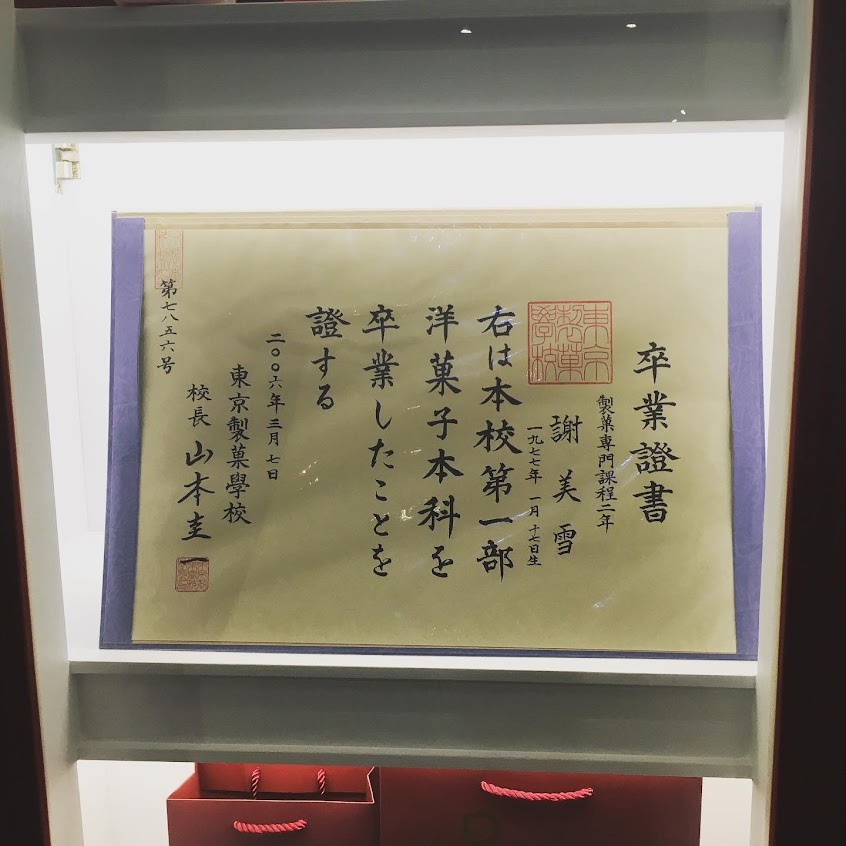 卒業證書
製菓専門課程二年
謝美雪
一九七七年 一月 十七日生
東京
製菓
學校
右は本校第一部
洋菓子本科を
卒業したことを
證する
二〇〇六年三月七日
東京製菓學校
校長 山本圭一
第七八五六号